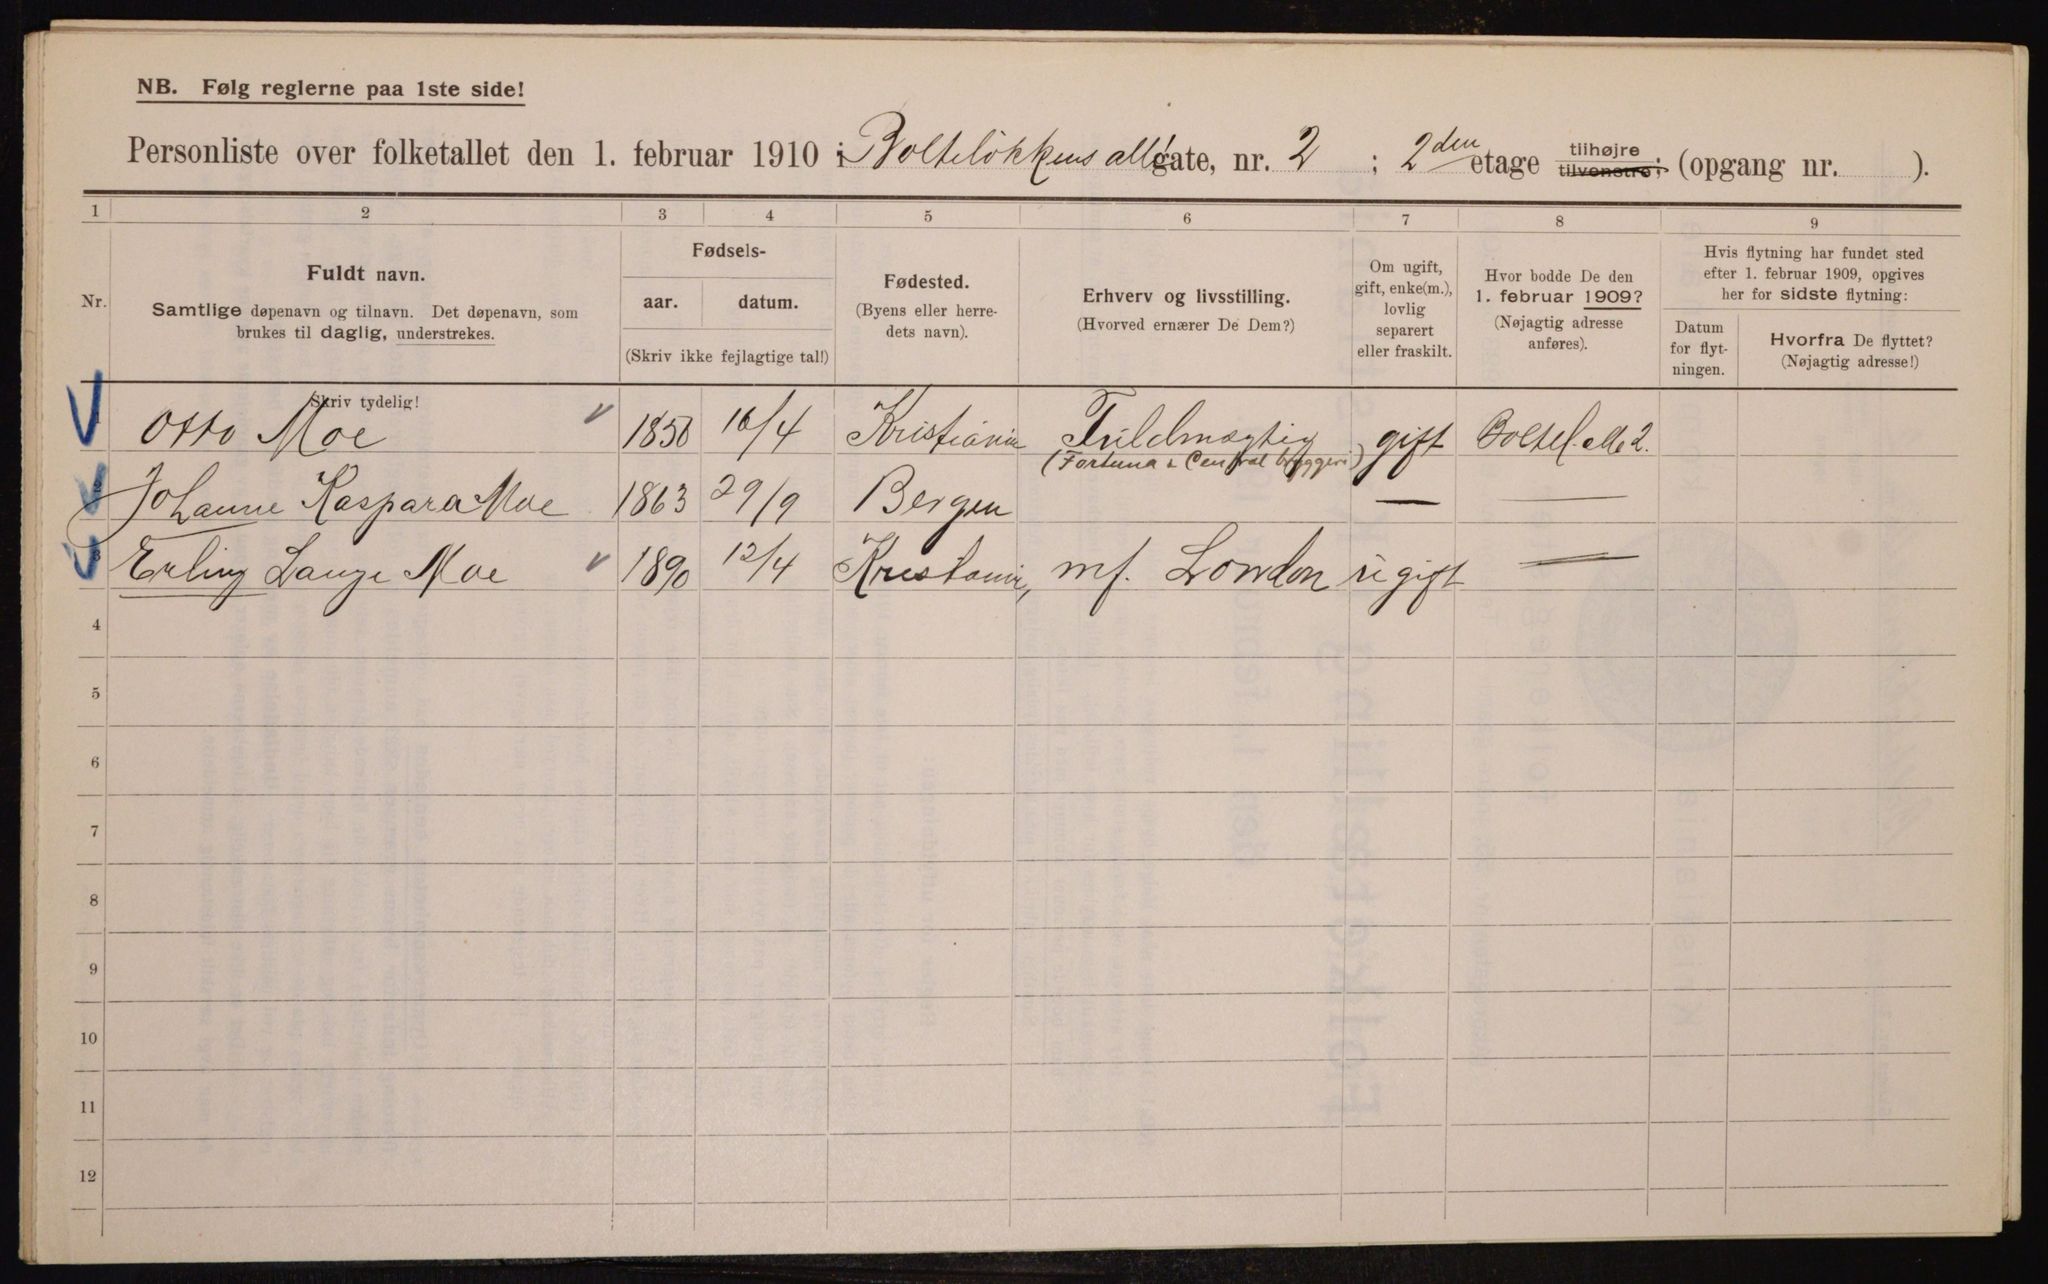 NB. Følg reglerne paa 1ste side!
Personliste over folketallet den 1. februar 1910 i Bolteløkkens allé gate, nr. 2 ; 2den etage tilhøjre tilvenstre; (opgang nr. ).
1 2 3 4 5 6 7 8 9
Nr.
Fuldt navn.
Samtlige døpenavn og tilnavn. Det døpenavn, som
brukes til daglig, understrekes.
Skriv tydelig!
Fødsels-
aar. datum.
(Skriv ikke fejlagtige tal!)
Fødested.
(Byens eller herre-
dets navn).
Erhverv og livsstilling.
(Hvorved ernærer De Dem?)
Om ugift,
gift, enke(m.),
lovlig
separert
eller fraskilt.
Hvor bodde De den
1. februar 1909?
(Nøjagtig adresse
anføres).
Hvis flytning har fundet sted
efter 1. februar 1909, opgives
her for sidste flytning:
Datum
for flyt-
ningen.
Hvorfra De flyttet?
(Nøjagtig adresse!)
Otto Moe 1850 16/4 Kristiania Fuldmægtig gift Boltel. Alle 2.
(Fortuna & Central bryggeri)
2 Johanne Kaspara Moe 1863 29/9 Bergen — —
3 Erling Lange Moe 1890 12/4 Kristiania, mf. London ugift —
4
5
6
7
8
9
10
11
12